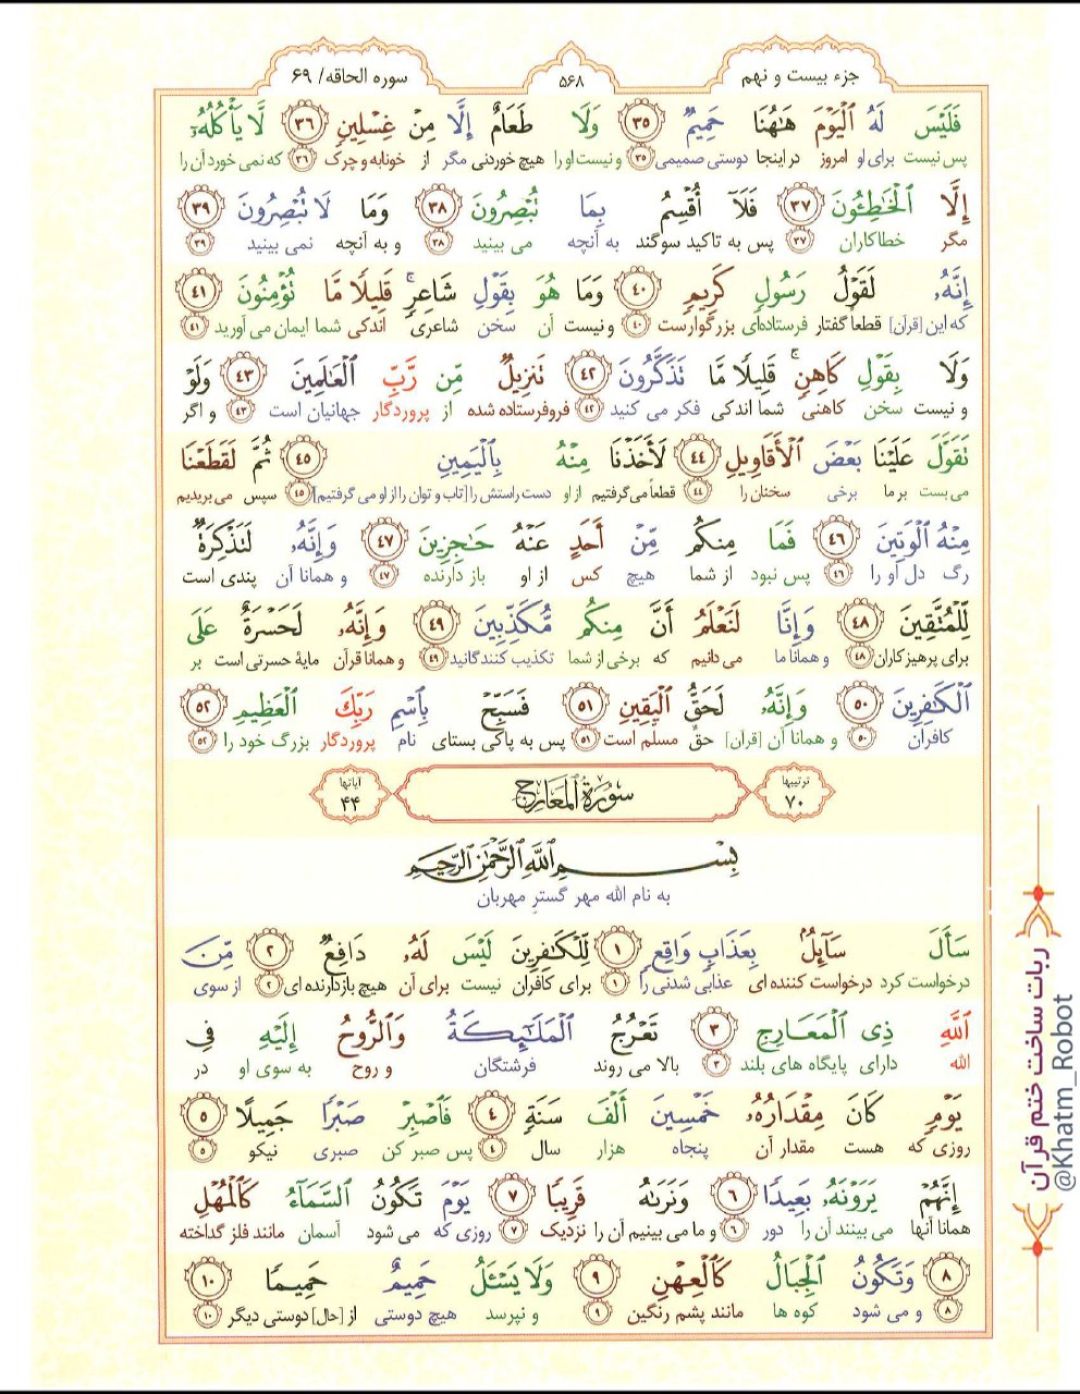 جزء بیست و نهم
۵۶۸
سوره الحاقه/ ۶۹
فَلَيْسَ لَهُ ٱلْيَوْمَ هَـٰهُنَا حَمِيمٌ ٣٥ وَلَا طَعَامٌ إِلَّا مِنْ غِسْلِينٍ ٣٦ لَّا يَأْكُلُهُۥٓ
پس نیست برای او امروز در اینجا دوستی صمیمی ٣٥ و نیست او را هیچ خوردنی مگر از خونابه و چرک ٣٦ که نمی خورد آن را
إِلَّا ٱلْخَـٰطِـُٔونَ ٣٧ فَلَآ أُقْسِمُ بِمَا تُبْصِرُونَ ٣٨ وَمَا لَا تُبْصِرُونَ ٣٩
مگر خطاکاران ٣٧ پس به تاکید سوگند به آنچه می بینید ٣٨ و به آنچه نمی بینید ٣٩
إِنَّهُۥ لَقَوْلُ رَسُولٍ كَرِيمٍ ٤٠ وَمَا هُوَ بِقَوْلِ شَاعِرٍ ۚ قَلِيلًا مَّا تُؤْمِنُونَ ٤١
که این [قرآن] قطعاً گفتار فرستاده‌ای بزرگوارست ٤٠ و نیست آن سخن شاعری اندکی شما ایمان می آورید ٤١
وَلَا بِقَوْلِ كَاهِنٍ ۚ قَلِيلًا مَّا تَذَكَّرُونَ ٤٢ تَنزِيلٌ مِّن رَّبِّ ٱلْعَـٰلَمِينَ ٤٣ وَلَوْ
و نیست سخن کاهنی شما اندکی فکر می کنید ٤٢ فروفرستاده شده از پروردگار جهانیان است ٤٣ و اگر
تَقَوَّلَ عَلَيْنَا بَعْضَ ٱلْأَقَاوِيلِ ٤٤ لَأَخَذْنَا مِنْهُ بِٱلْيَمِينِ ٤٥ ثُمَّ لَقَطَعْنَا
می بست بر ما برخی سخنان را ٤٤ قطعاً می‌گرفتیم از او دست راستش را [تاب و توان را از او می گرفتیم] ٤٥ سپس می بریدیم
مِنْهُ ٱلْوَتِينَ ٤٦ فَمَا مِنكُم مِّنْ أَحَدٍ عَنْهُ حَـٰجِزِينَ ٤٧ وَإِنَّهُۥ لَتَذْكِرَةٌ
رگ دل او را ٤٦ پس نبود از شما هیچ کس از او باز دارنده ٤٧ و همانا آن پندی است
لِّلْمُتَّقِينَ ٤٨ وَإِنَّا لَنَعْلَمُ أَنَّ مِنكُم مُّكَذِّبِينَ ٤٩ وَإِنَّهُۥ لَحَسْرَةٌ عَلَى
برای پرهیزکاران ٤٨ و همانا ما می دانیم که برخی از شما تکذیب کنندگانید ٤٩ و همانا قرآن مایهٔ حسرتی است بر
ٱلْكَـٰفِرِينَ ٥٠ وَإِنَّهُۥ لَحَقُّ ٱلْيَقِينِ ٥١ فَسَبِّحْ بِٱسْمِ رَبِّكَ ٱلْعَظِيمِ ٥٢
کافران ٥٠ و همانا آن [قرآن] حقّ مسلم است ٥١ پس به پاکی بستای نام پروردگار بزرگ خود را ٥٢
ترتیبها ٧٠
سُورَةُ ٱلْمَعَارِجِ
آیاتها ٤٤
بِسْمِ ٱللَّهِ ٱلرَّحْمَـٰنِ ٱلرَّحِيمِ
به نام الله مهر گستر مهربان
سَأَلَ سَآئِلٌۢ بِعَذَابٍ وَاقِعٍ ١ لِّلْكَـٰفِرِينَ لَيْسَ لَهُۥ دَافِعٌ ٢ مِّنَ
درخواست کرد درخواست کننده ای عذابی شدنی را ١ برای کافران نیست برای آن هیچ بازدارنده ای ٢ از سوی
ٱللَّهِ ذِى ٱلْمَعَارِجِ ٣ تَعْرُجُ ٱلْمَلَـٰٓئِكَةُ وَٱلرُّوحُ إِلَيْهِ فِى
الله دارای پایگاه های بلند ٣ بالا می روند فرشتگان و روح به سوی او در
يَوْمٍ كَانَ مِقْدَارُهُۥ خَمْسِينَ أَلْفَ سَنَةٍ ٤ فَٱصْبِرْ صَبْرًا جَمِيلًا ٥
روزی که هست مقدار آن پنجاه هزار سال ٤ پس صبر کن صبری نیکو ٥
إِنَّهُمْ يَرَوْنَهُۥ بَعِيدًا ٦ وَنَرَىٰهُ قَرِيبًا ٧ يَوْمَ تَكُونُ ٱلسَّمَآءُ كَٱلْمُهْلِ
همانا آنها می بینند آن را دور ٦ و ما می بینیم آن را نزدیک ٧ روزی که می شود آسمان مانند فلز گداخته
٨ وَتَكُونُ ٱلْجِبَالُ كَٱلْعِهْنِ ٩ وَلَا يَسْـَٔلُ حَمِيمٌ حَمِيمًا ١٠
٨ و می شود کوه ها مانند پشم رنگین ٩ و نپرسد هیچ دوستی از [حال] دوستی دیگر ١٠
ربات ساخت ختم قرآن
@Khatm_Robot